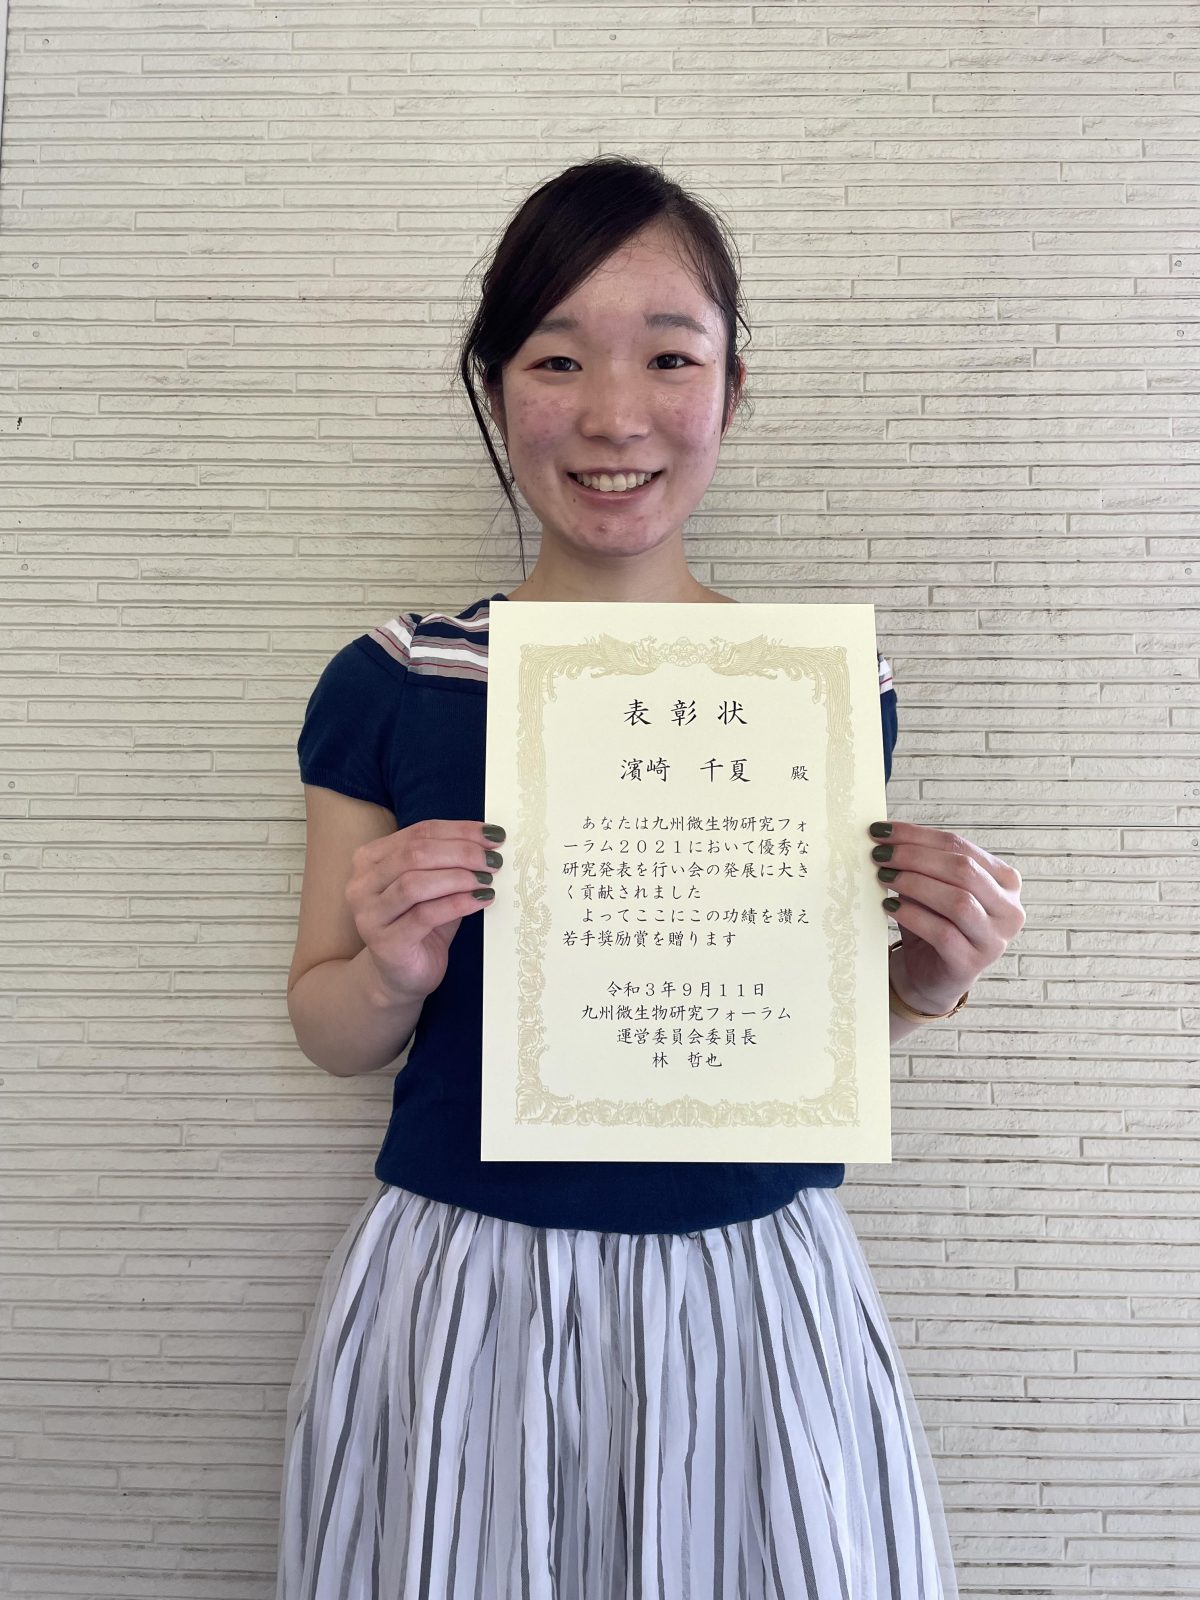 表彰状
濱崎　千夏　殿
あなたは九州微生物研究フォ
ーラム２０２１において優秀な
研究発表を行い会の発展に大き
く貢献されました
よってここにこの功績を讃え
若手奨励賞を贈ります
令和３年９月１１日
九州微生物研究フォーラム
運営委員会委員長
林　哲也